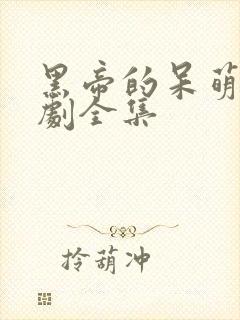 黑帝的呆萌
劇全集
拎葫冲